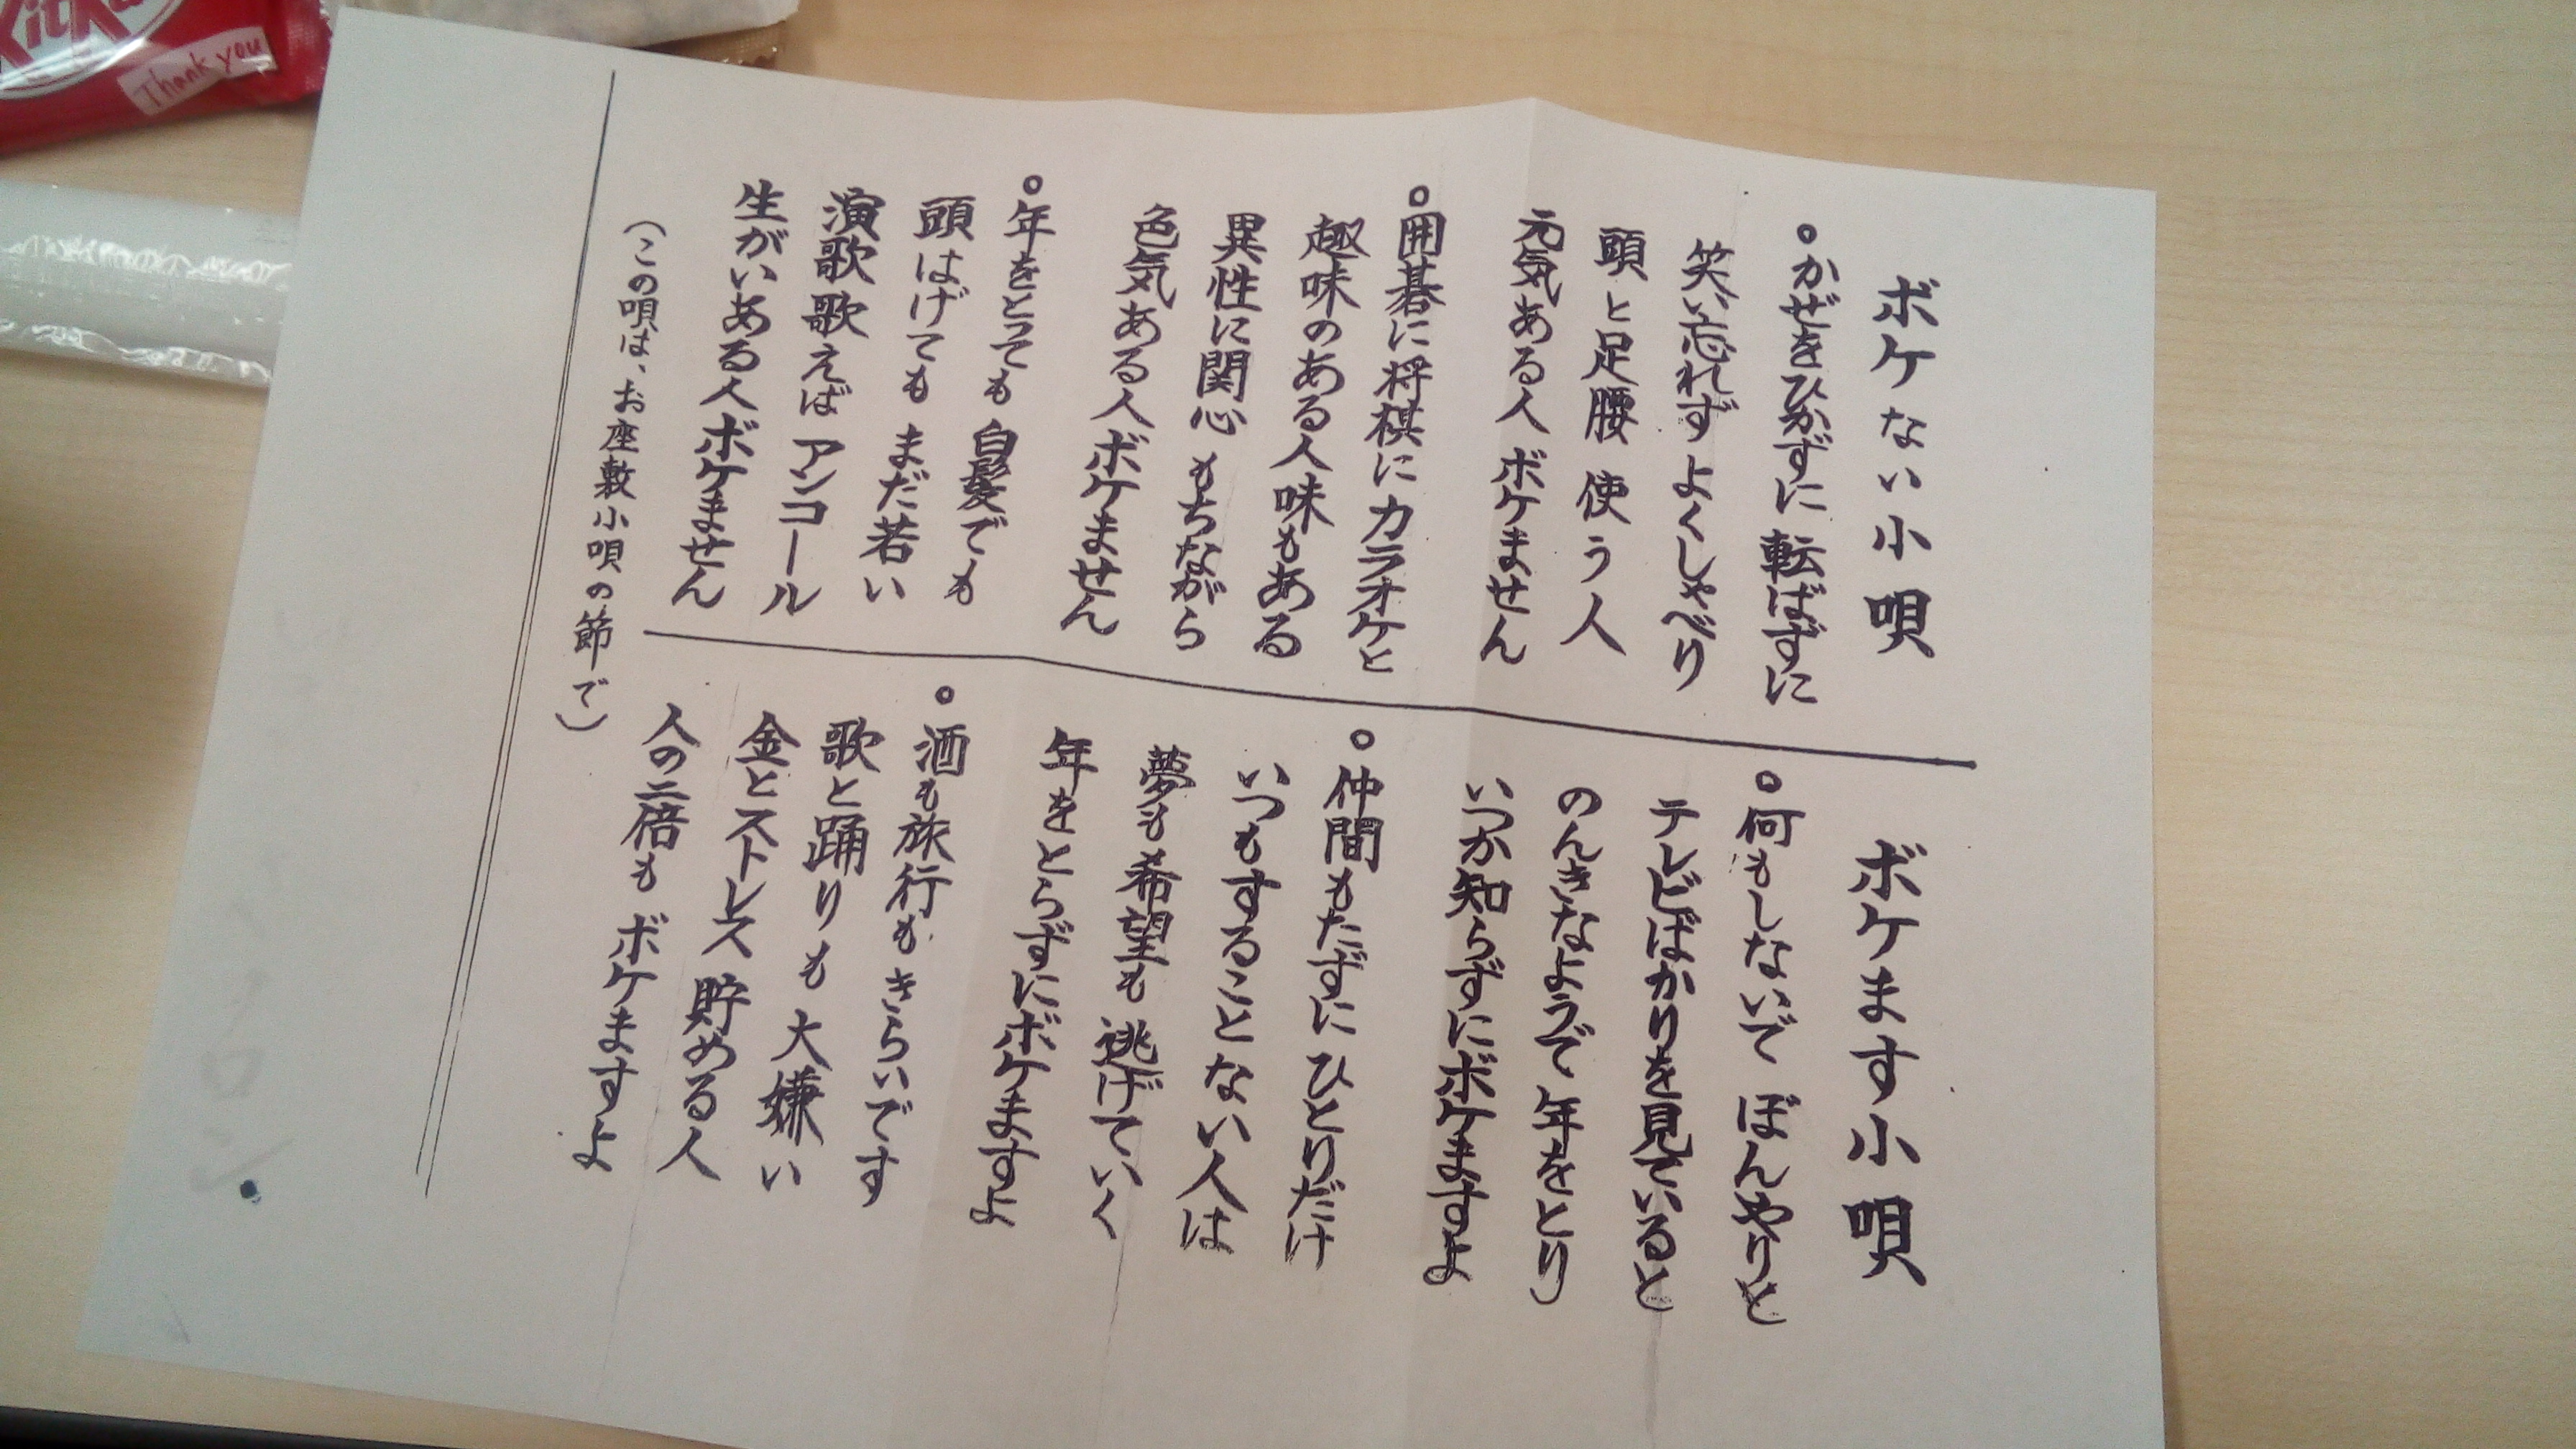 ボケない小唄
○かぜをひかずに 転ばずに
笑い忘れず よくしゃべり
頭と足腰 使う人
元気ある人 ボケません
○囲碁に将棋に カラオケと
趣味のある人味もある
異性に関心 もちながら
色気ある人 ボケません
○年をとっても 白髪でも
頭はげても まだ若い
演歌歌えば アンコール
生がいある人ボケません
(この唄は、お座敷小唄の節で)
ボケます小唄
○何もしないで ぼんやりと
テレビばかりを見ていると
のんきなようで 年をとり
いつか知らずにボケますよ
○仲間もたずに ひとりだけ
いつもすること ない人は
夢も希望も 逃げていく
年をとらずにボケますよ
○酒も旅行も きらいです
歌と踊りも 大嫌い
金とストレス 貯める人
人の二倍も ボケますよ
KitKat
Thank you